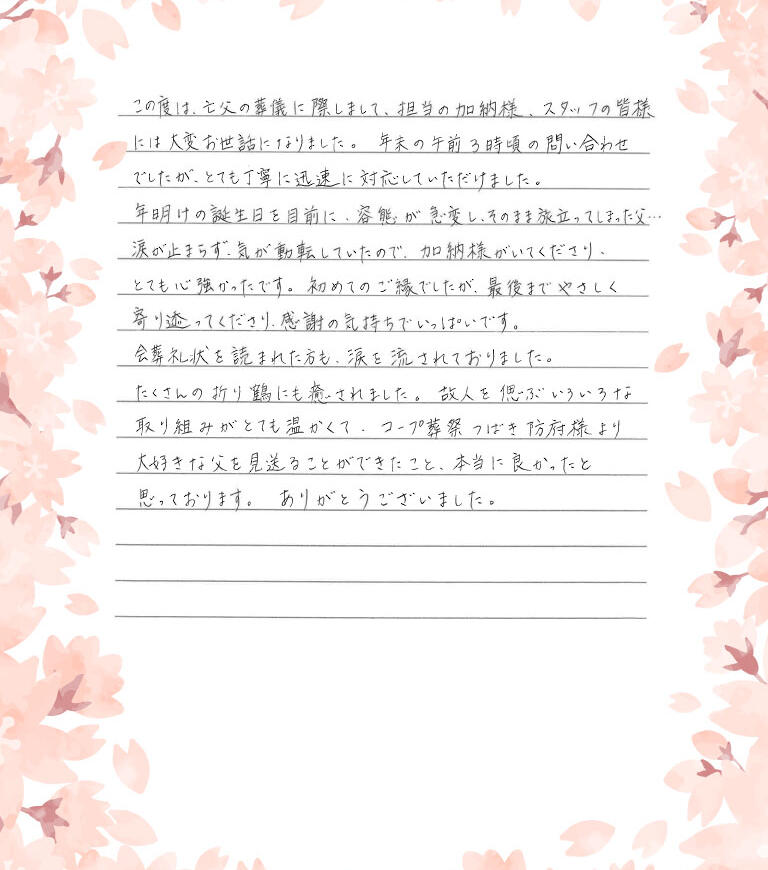 この度は、亡父の葬儀に際しまして、担当の加納様、スタッフの皆様
には大変お世話になりました。 年末の午前3時頃の問い合わせ
でしたが、とても丁寧に迅速に対応していただけました。
年明けの誕生日を目前に、容態が急変し、そのまま旅立ってしまった父…
涙が止まらず、気が動転していたので、加納様がいてくださり、
とても心強かったです。初めてのご縁でしたが、最後までやさしく
寄り添ってくださり、感謝の気持ちでいっぱいです。
会葬礼状を読まれた方も、涙を流されておりました。
たくさんの折り鶴にも癒されました。故人を偲ぶいろいろな
取り組みがとても温かくて、コープ葬祭つばき防府様より
大好きな父を見送ることができたこと、本当に良かったと
思っております。 ありがとうございました。